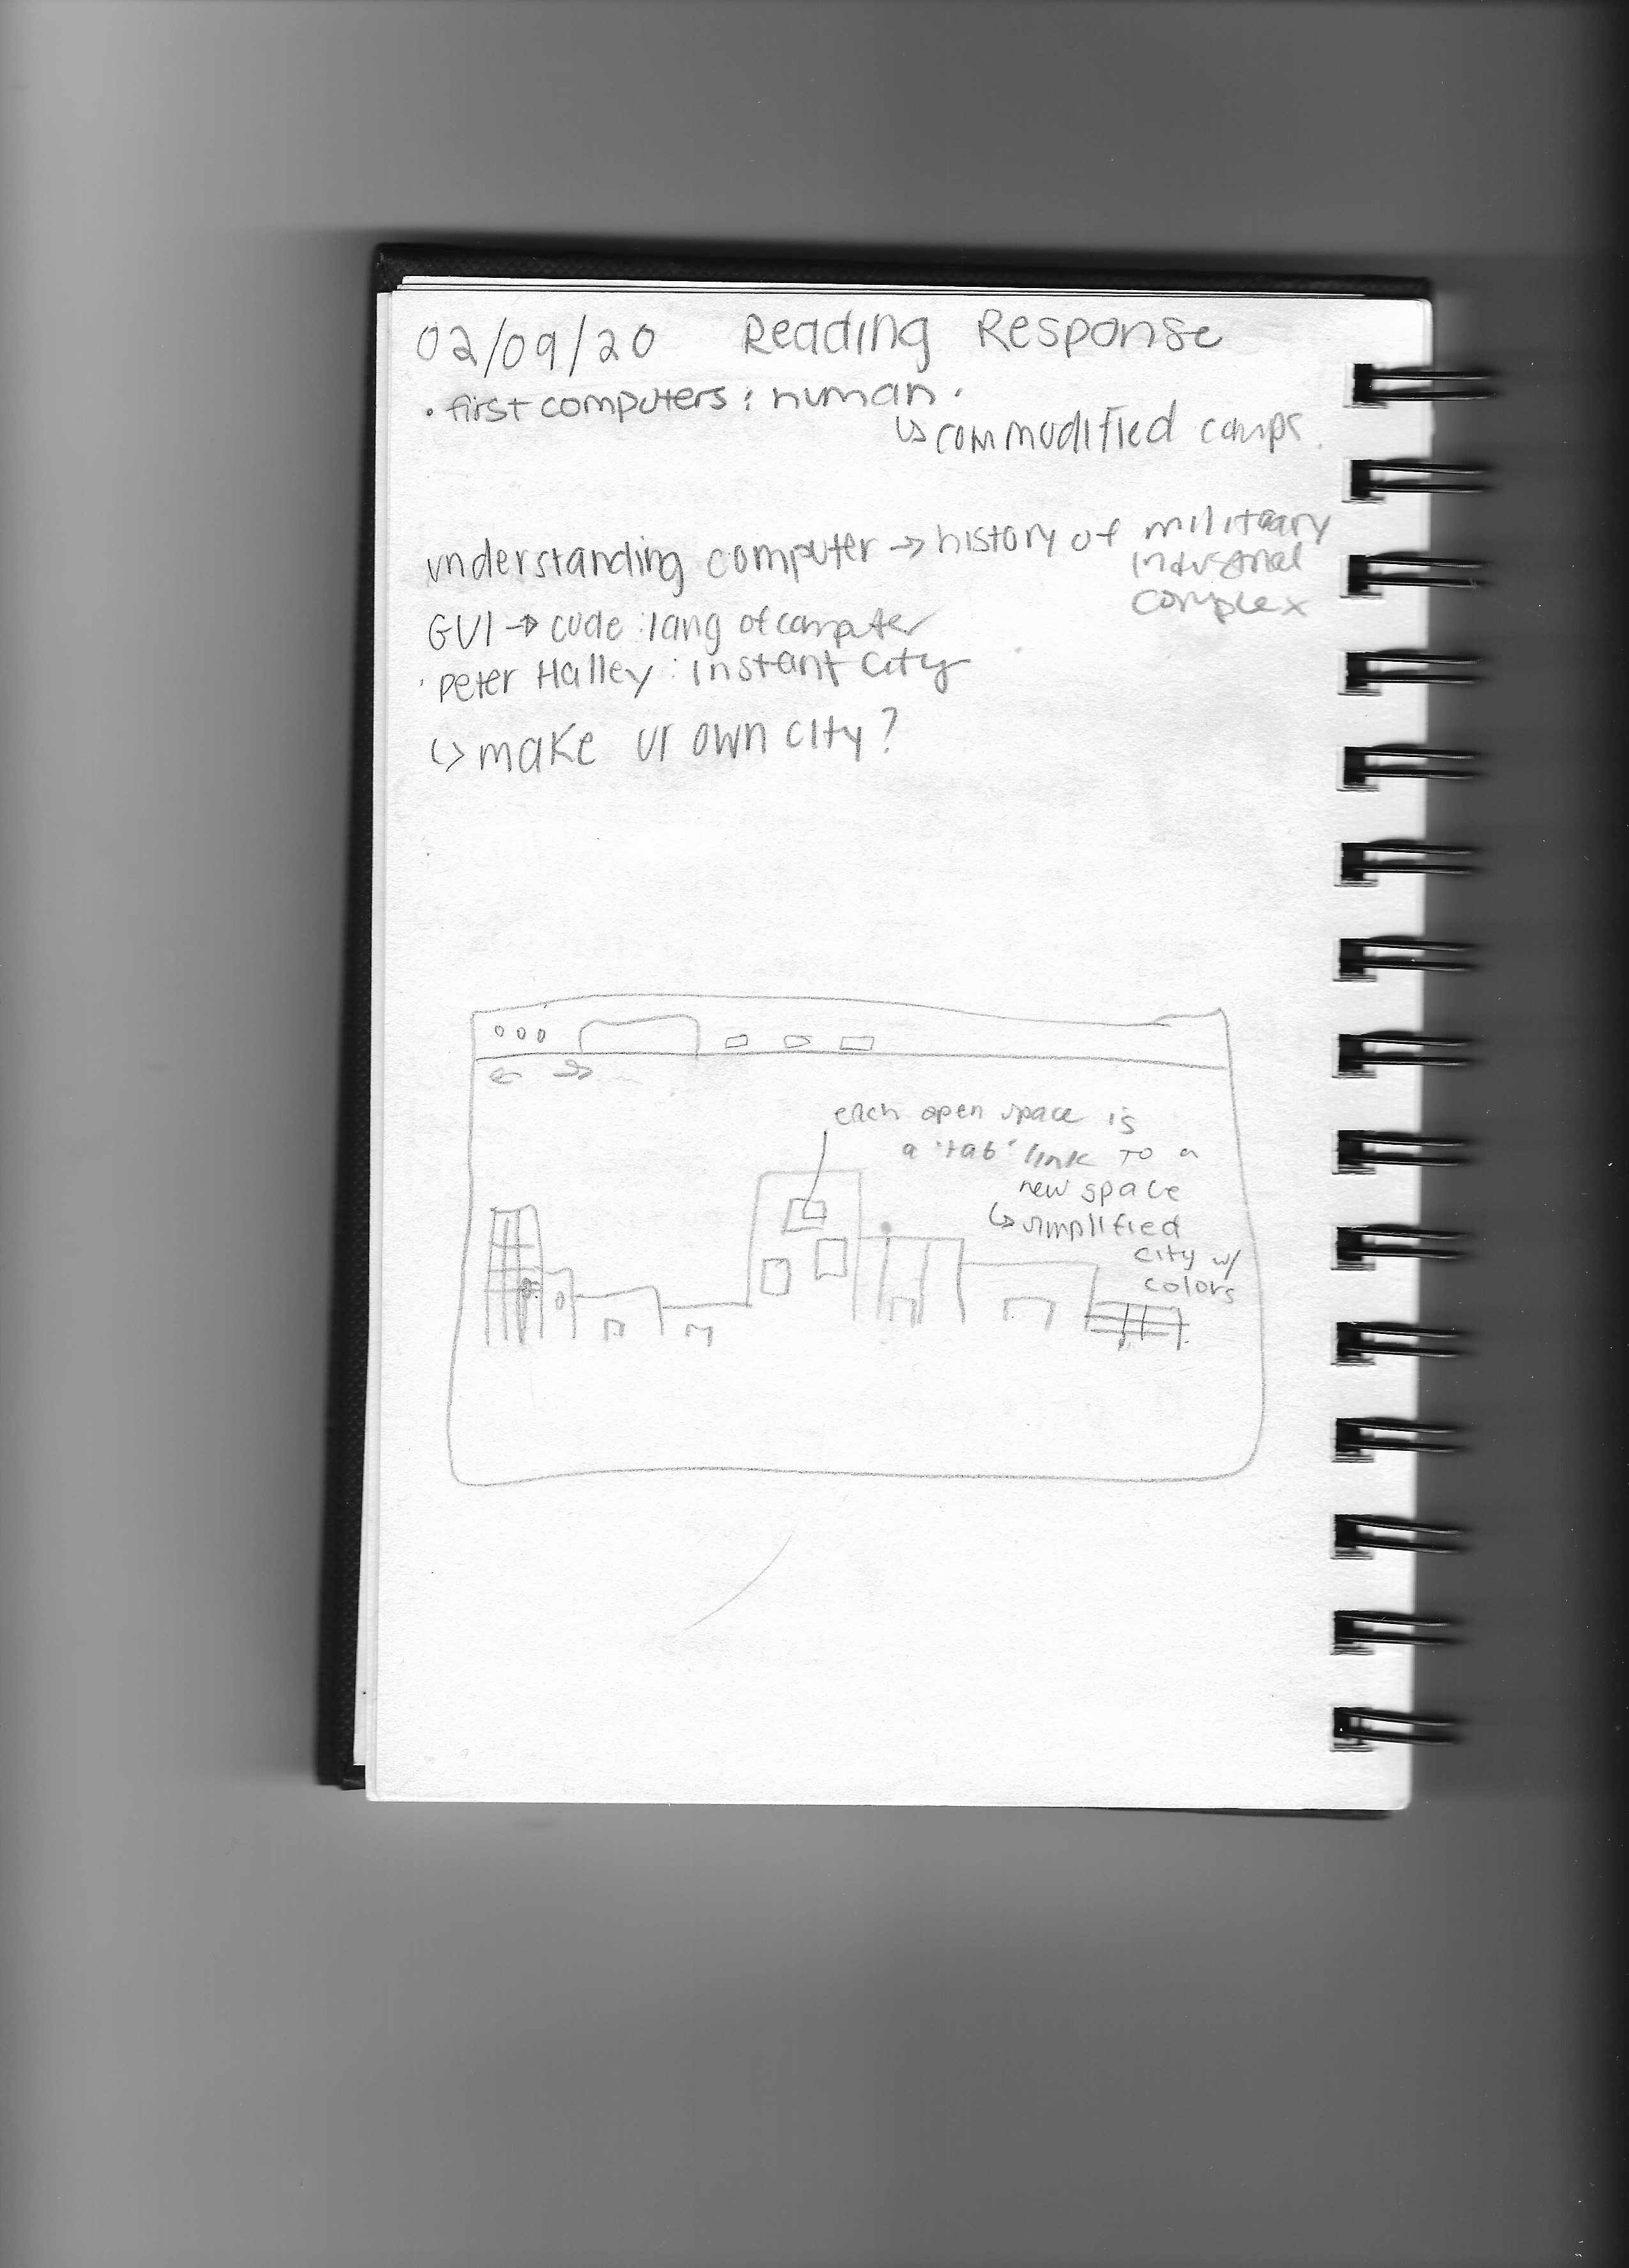 02/09/20 Reading Response
• first computers : human.
↳ commodified comps.
understanding computer → history of military
industrial
complex
GUI → code : lang of computer
• Peter Halley : instant city
↳ make ur own city?
each open space is
a 'tab' link to a
new space
↳ simplified
city w/
colors